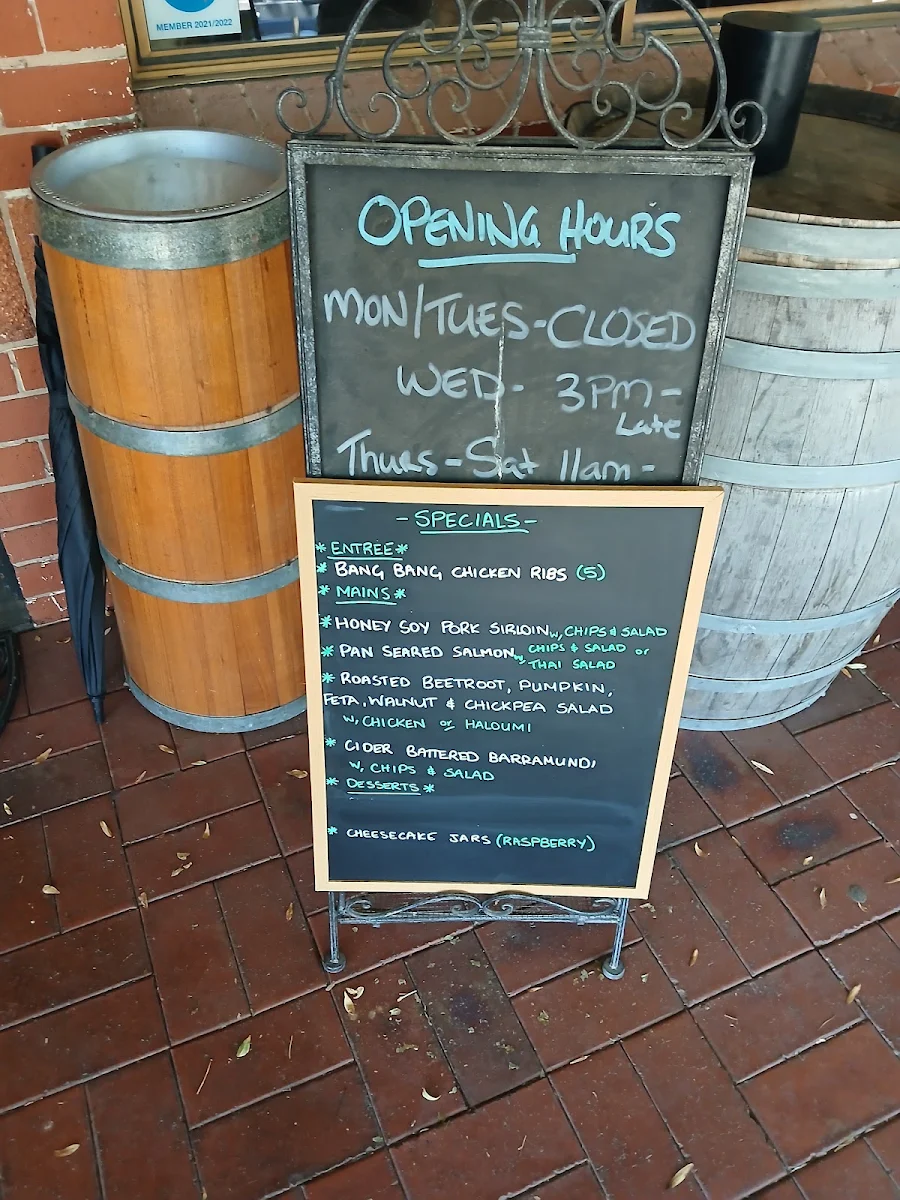 MEMBER 2021/2022
OPENING HOURS
MON/TUES-CLOSED
WED - 3PM-
Late
Thurs-Sat 11am-
- SPECIALS -
* ENTREE *
* BANG BANG CHICKEN RIBS (5)
* MAINS *
* HONEY SOY PORK SIRLOIN w, CHIPS & SALAD
* PAN SEARED SALMON w, CHIPS & SALAD or
THAI SALAD
* ROASTED BEETROOT, PUMPKIN,
FETA, WALNUT & CHICKPEA SALAD
w, CHICKEN or HALOUMI
* CIDER BATTERED BARRAMUNDI
w, CHIPS & SALAD
* DESSERTS *
* CHEESECAKE JARS (RASPBERRY)